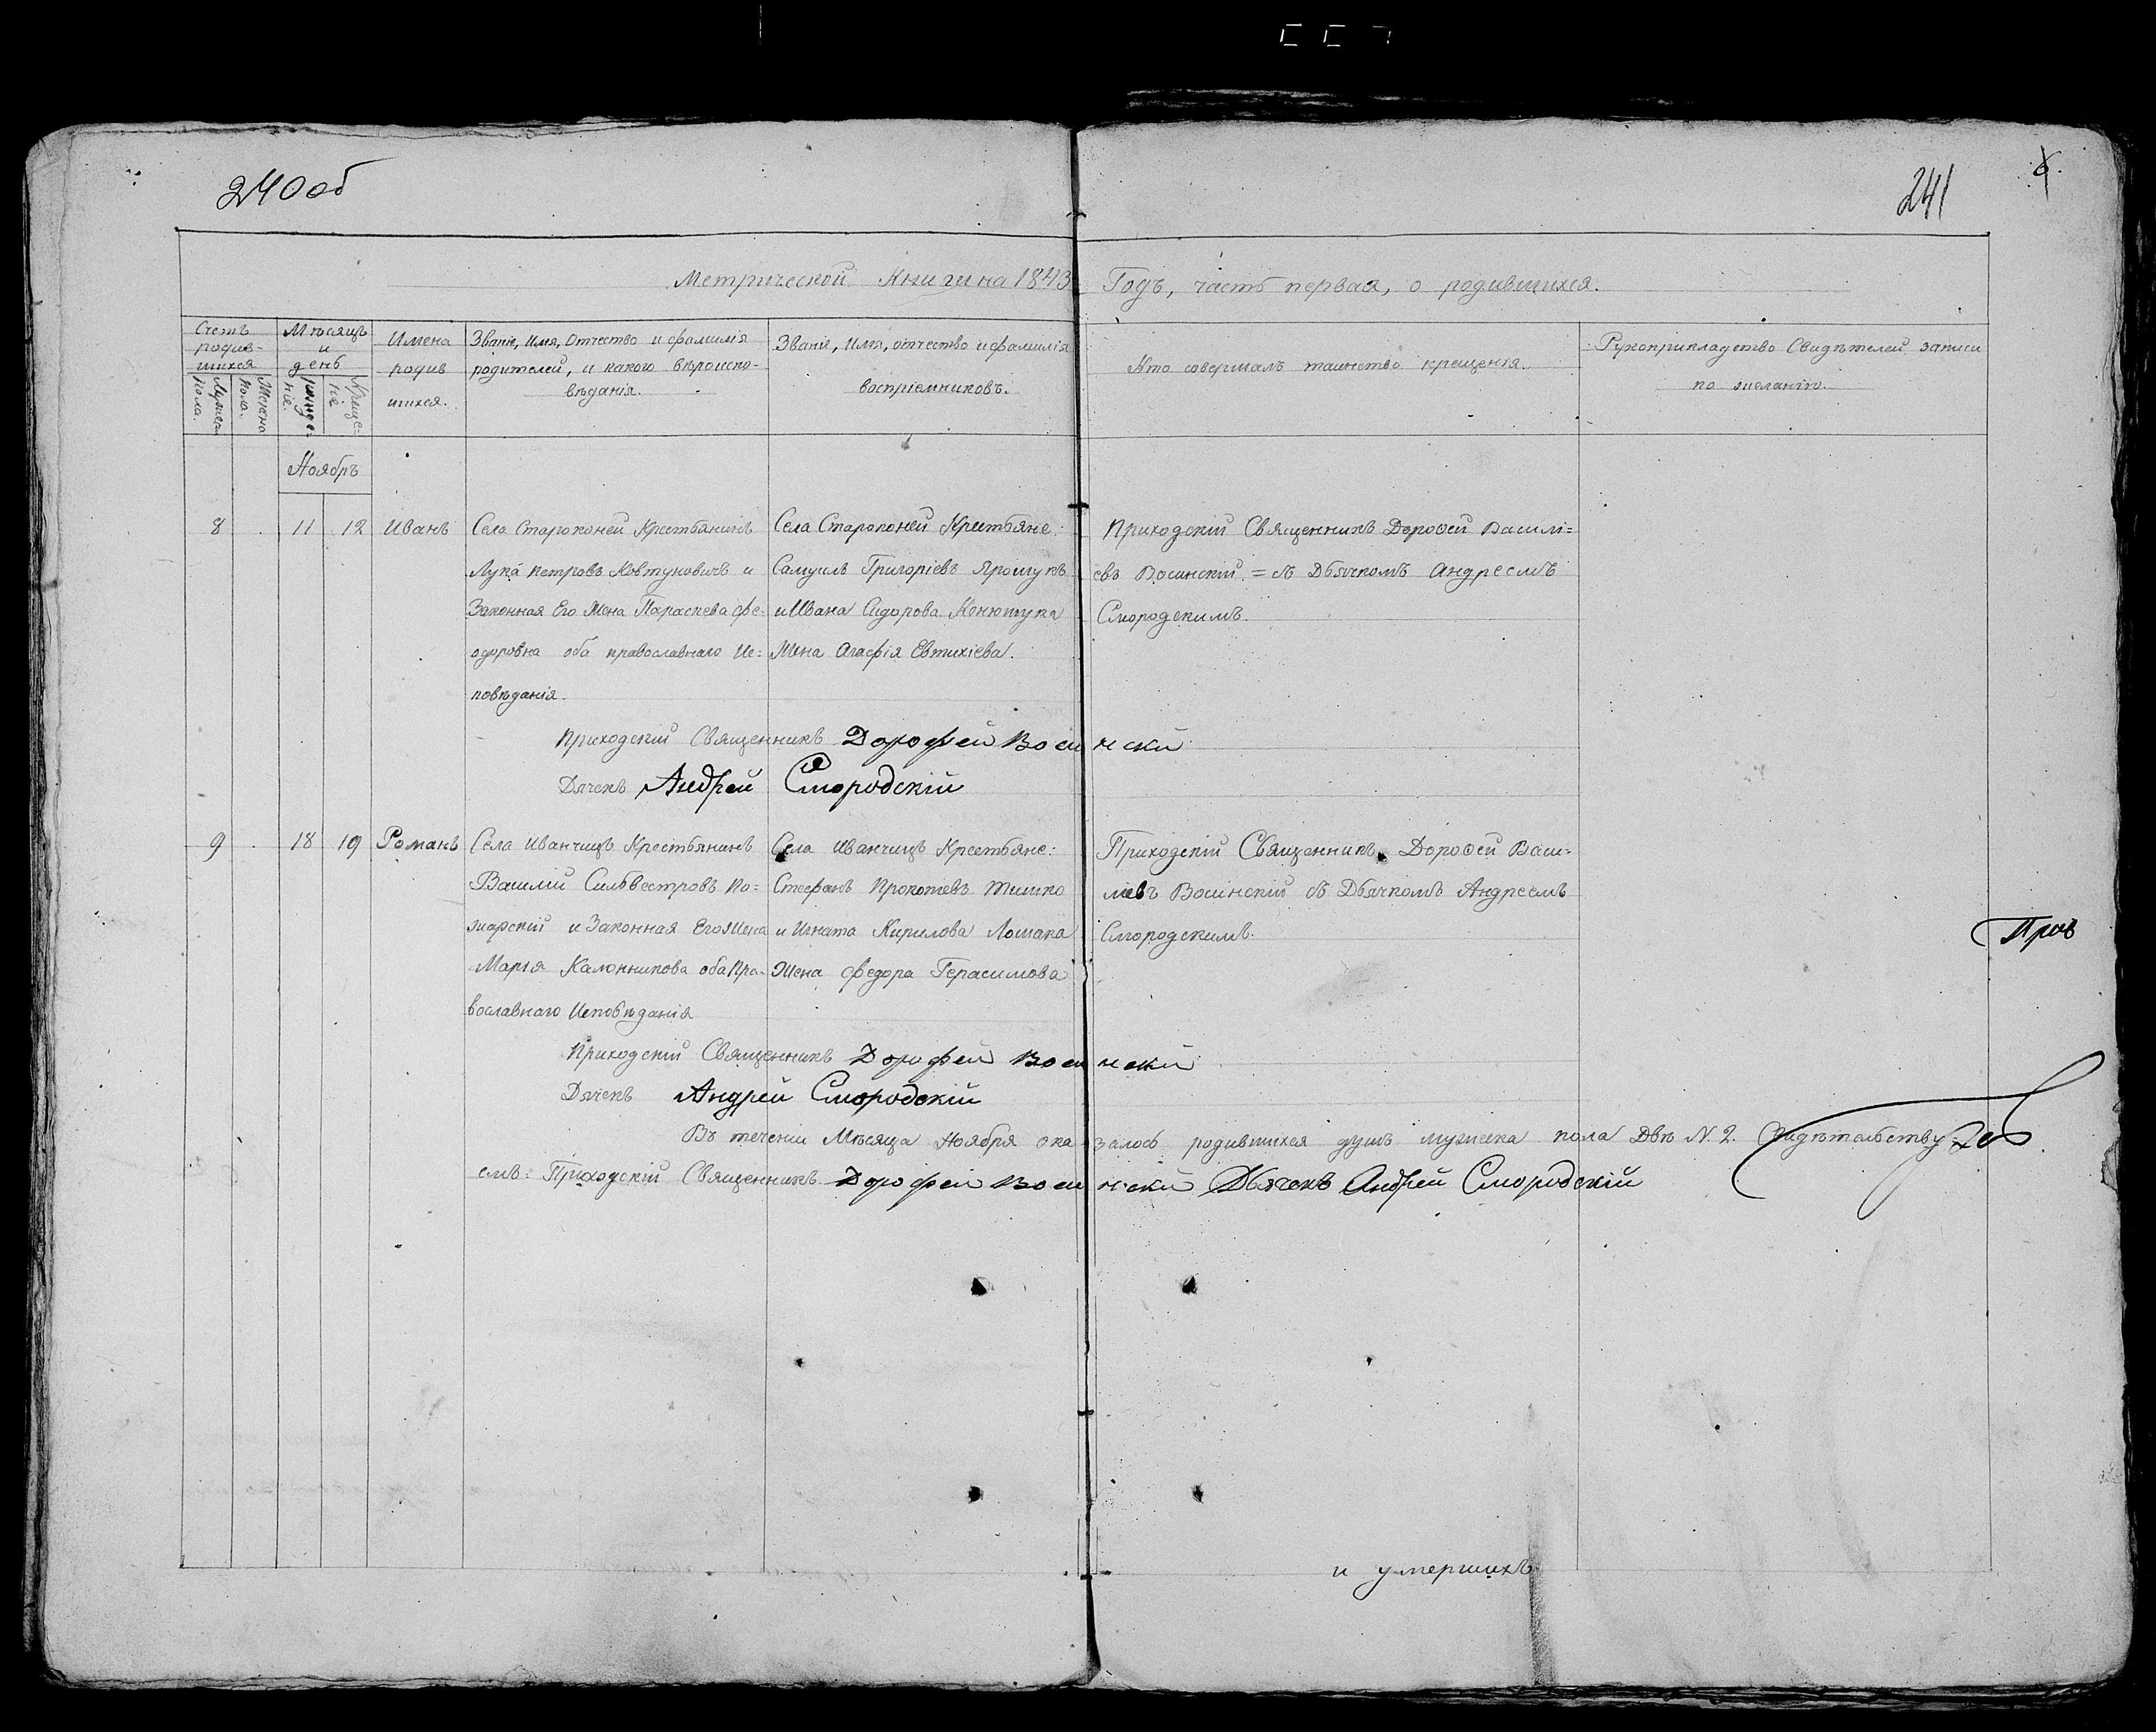 240об
241
6.
Метрической Книги на 1843 Годъ, часть первая, о родившихся.
Счетъ родив-шихся
Мужеска пола.
Женска пола.
Мѣсяцъ и день
рожде-нія.
Креще-нія
Имена родив шихся.
Званіе, Имя, Отчество и фамилія родителей, и какого вѣроиспо-вѣданія.
Званіе, Имя, отчество и фамилія воспріемниковъ.
Кто совершалъ таинство крещенія.
Рукоприкладство Свидѣтелей записи по желанію.
Ноябръ
8 11 12 Иванъ
Села Староконей Крестьянинъ
Лука Петровъ Ковтуновичъ и
Законная Его Жена Параскева Фе-
одоровна оба православнаго Ис-
повѣданія.
Села Староконей Крестьяне:
Самуилъ Григоріевъ Ярошукъ
и Ивана Сидорова
Жена Агафія Евтихіева.
Приходскій Священникъ Дороѳей Василі=
евъ Восинскій = съ Дьячкомъ Андреемъ
Смородскимъ.
Приходскій Священникъ Дорофей Восинскій
Дячекъ Андрей Смородскій
9 18 19 Романъ
Села Иванчицъ Крестьянинъ
Василій Сильвестровъ По=
жарскій и Законная Его Жена
Марія Калюнникова оба Пра-
вославнаго Исповѣданія
Села Иванчицъ Крестьяне:
Стефанъ Прокопіевъ Тишко
и Игната Кирилова Ломака
Жена Федора Герасимова
Приходскій Священникъ Дороѳей Васи=
ліевъ Восинскій съ Дьячкомъ Андреемъ
Смородскимъ.
Приходскій Священникъ Дорофей Восинскій
Дячекъ Андрей Смородскій
Въ теченіи Мѣсяца Ноября оказалось родившихся душъ мужеска пола Двѣ N. 2. Свидѣтельству-
емъ: Приходскій Священникъ Дорофей Восинскій Дьячекъ Андрей Смородскій
и умершихъ